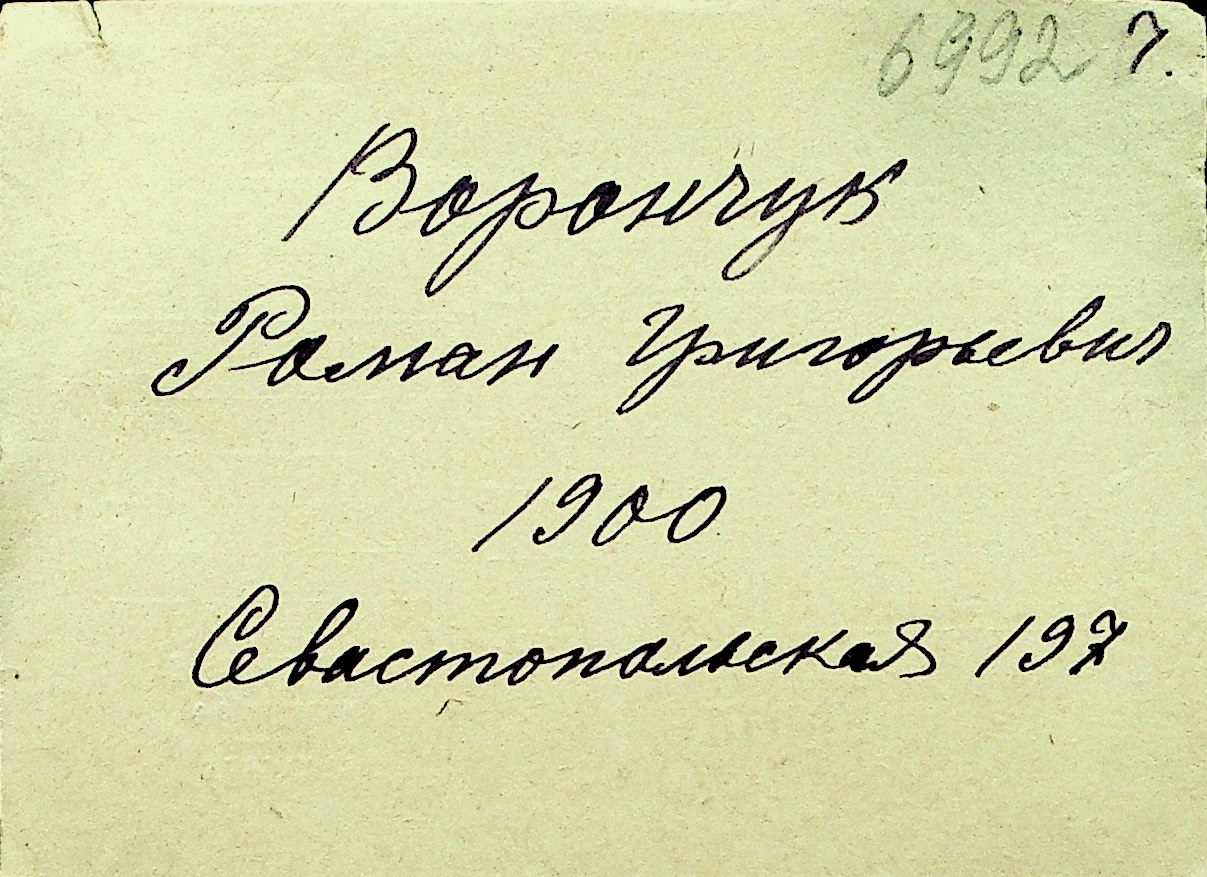 6992 7.
Ворончук
Роман Григорьевич
1900
Севастопольская 197